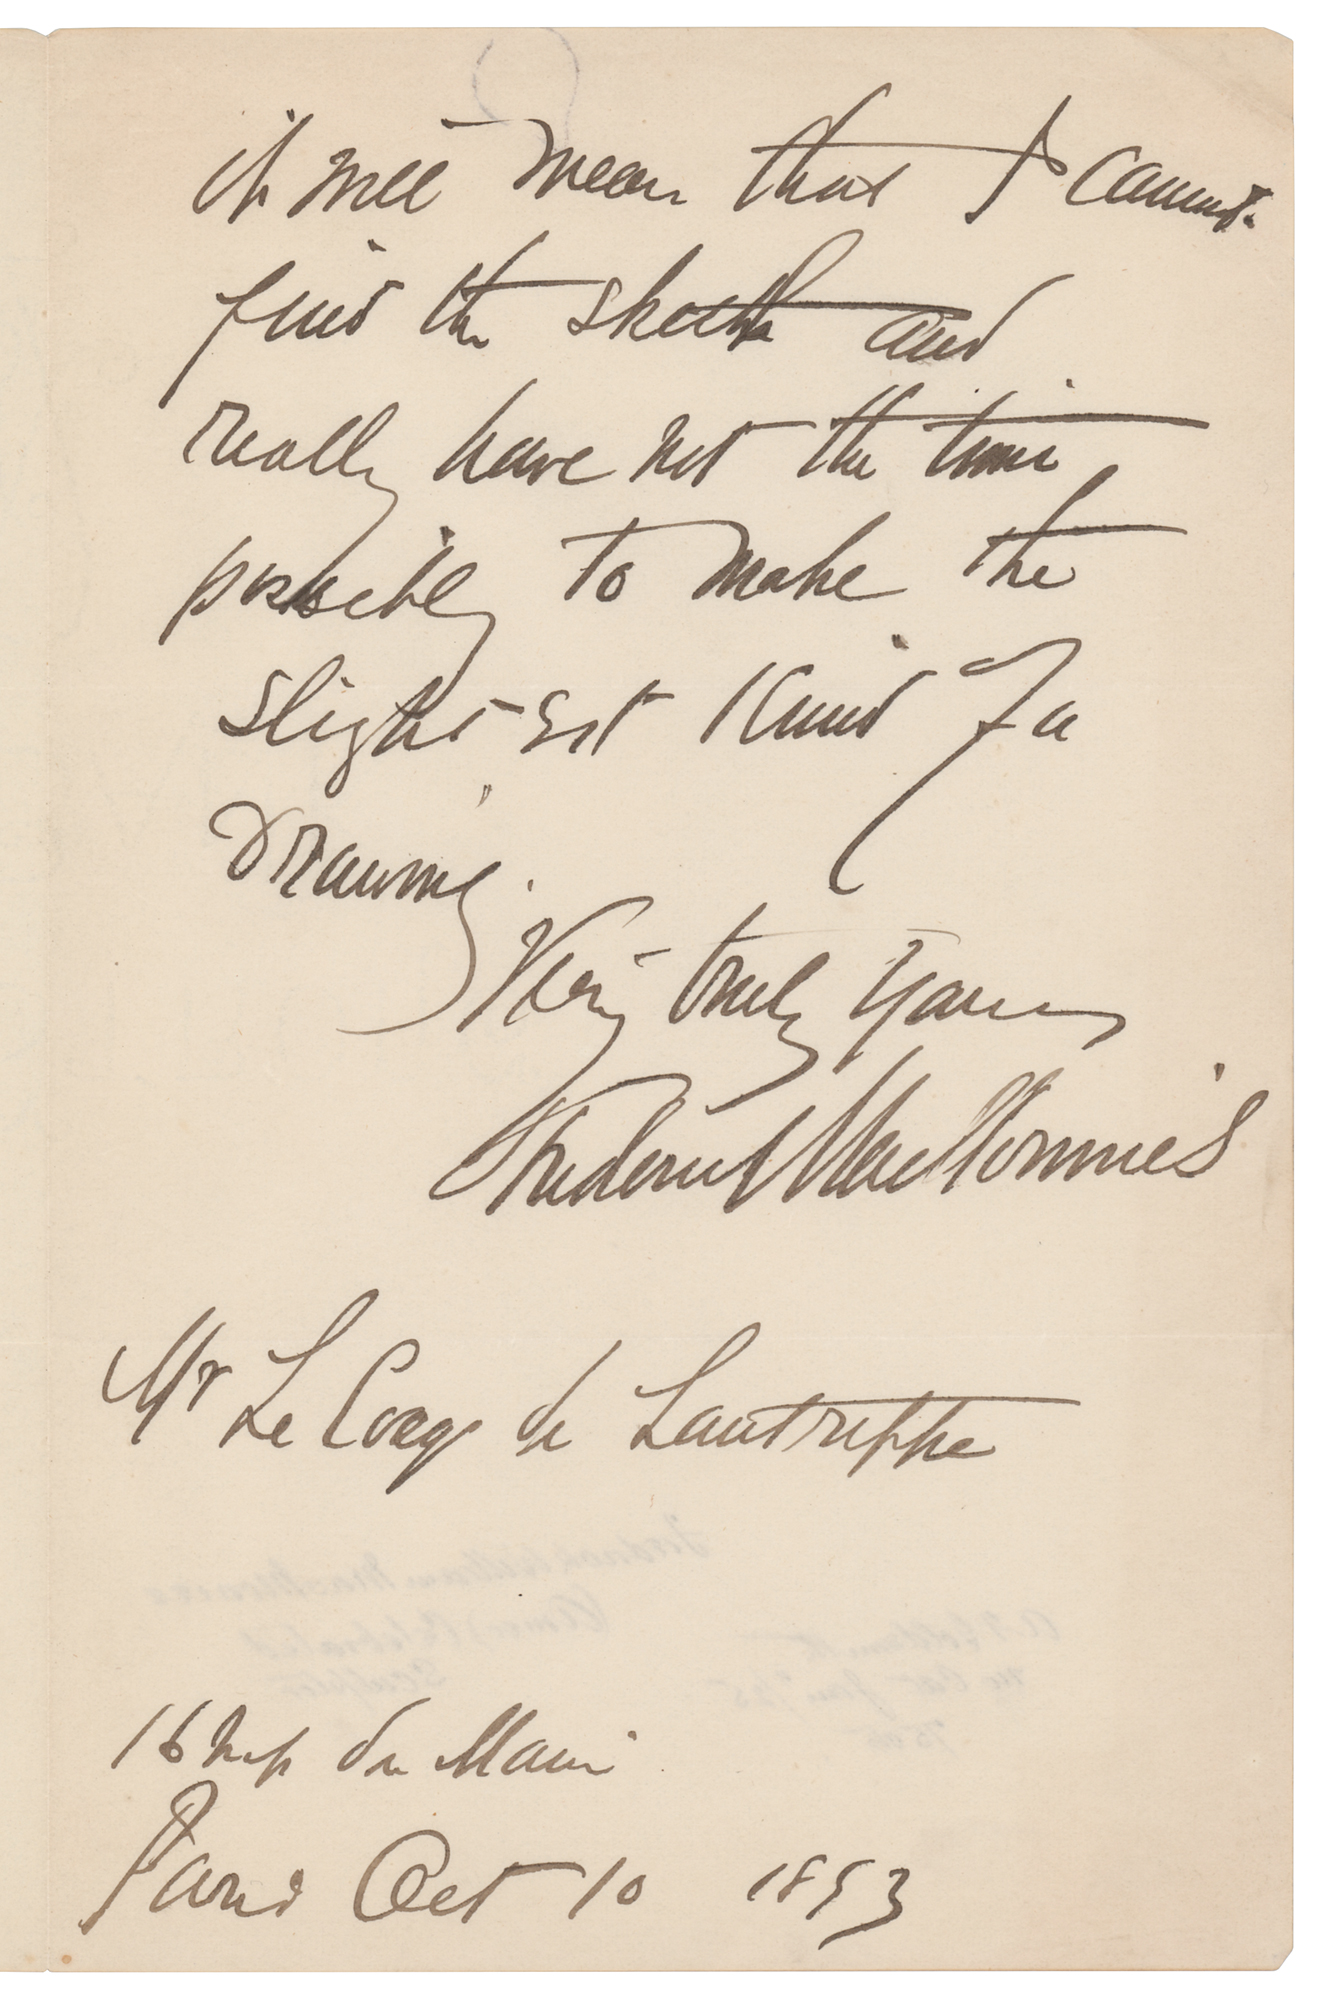 it will mean that I cannot
find the sketch and
really have not the time
possibly to make the
slight-est kind of a
Drawing.
Very truly yours
Frederick MacMonnies
Mr Le Cocq de Lautreppe
16 Imp du Maine
Paris Oct 10 1893